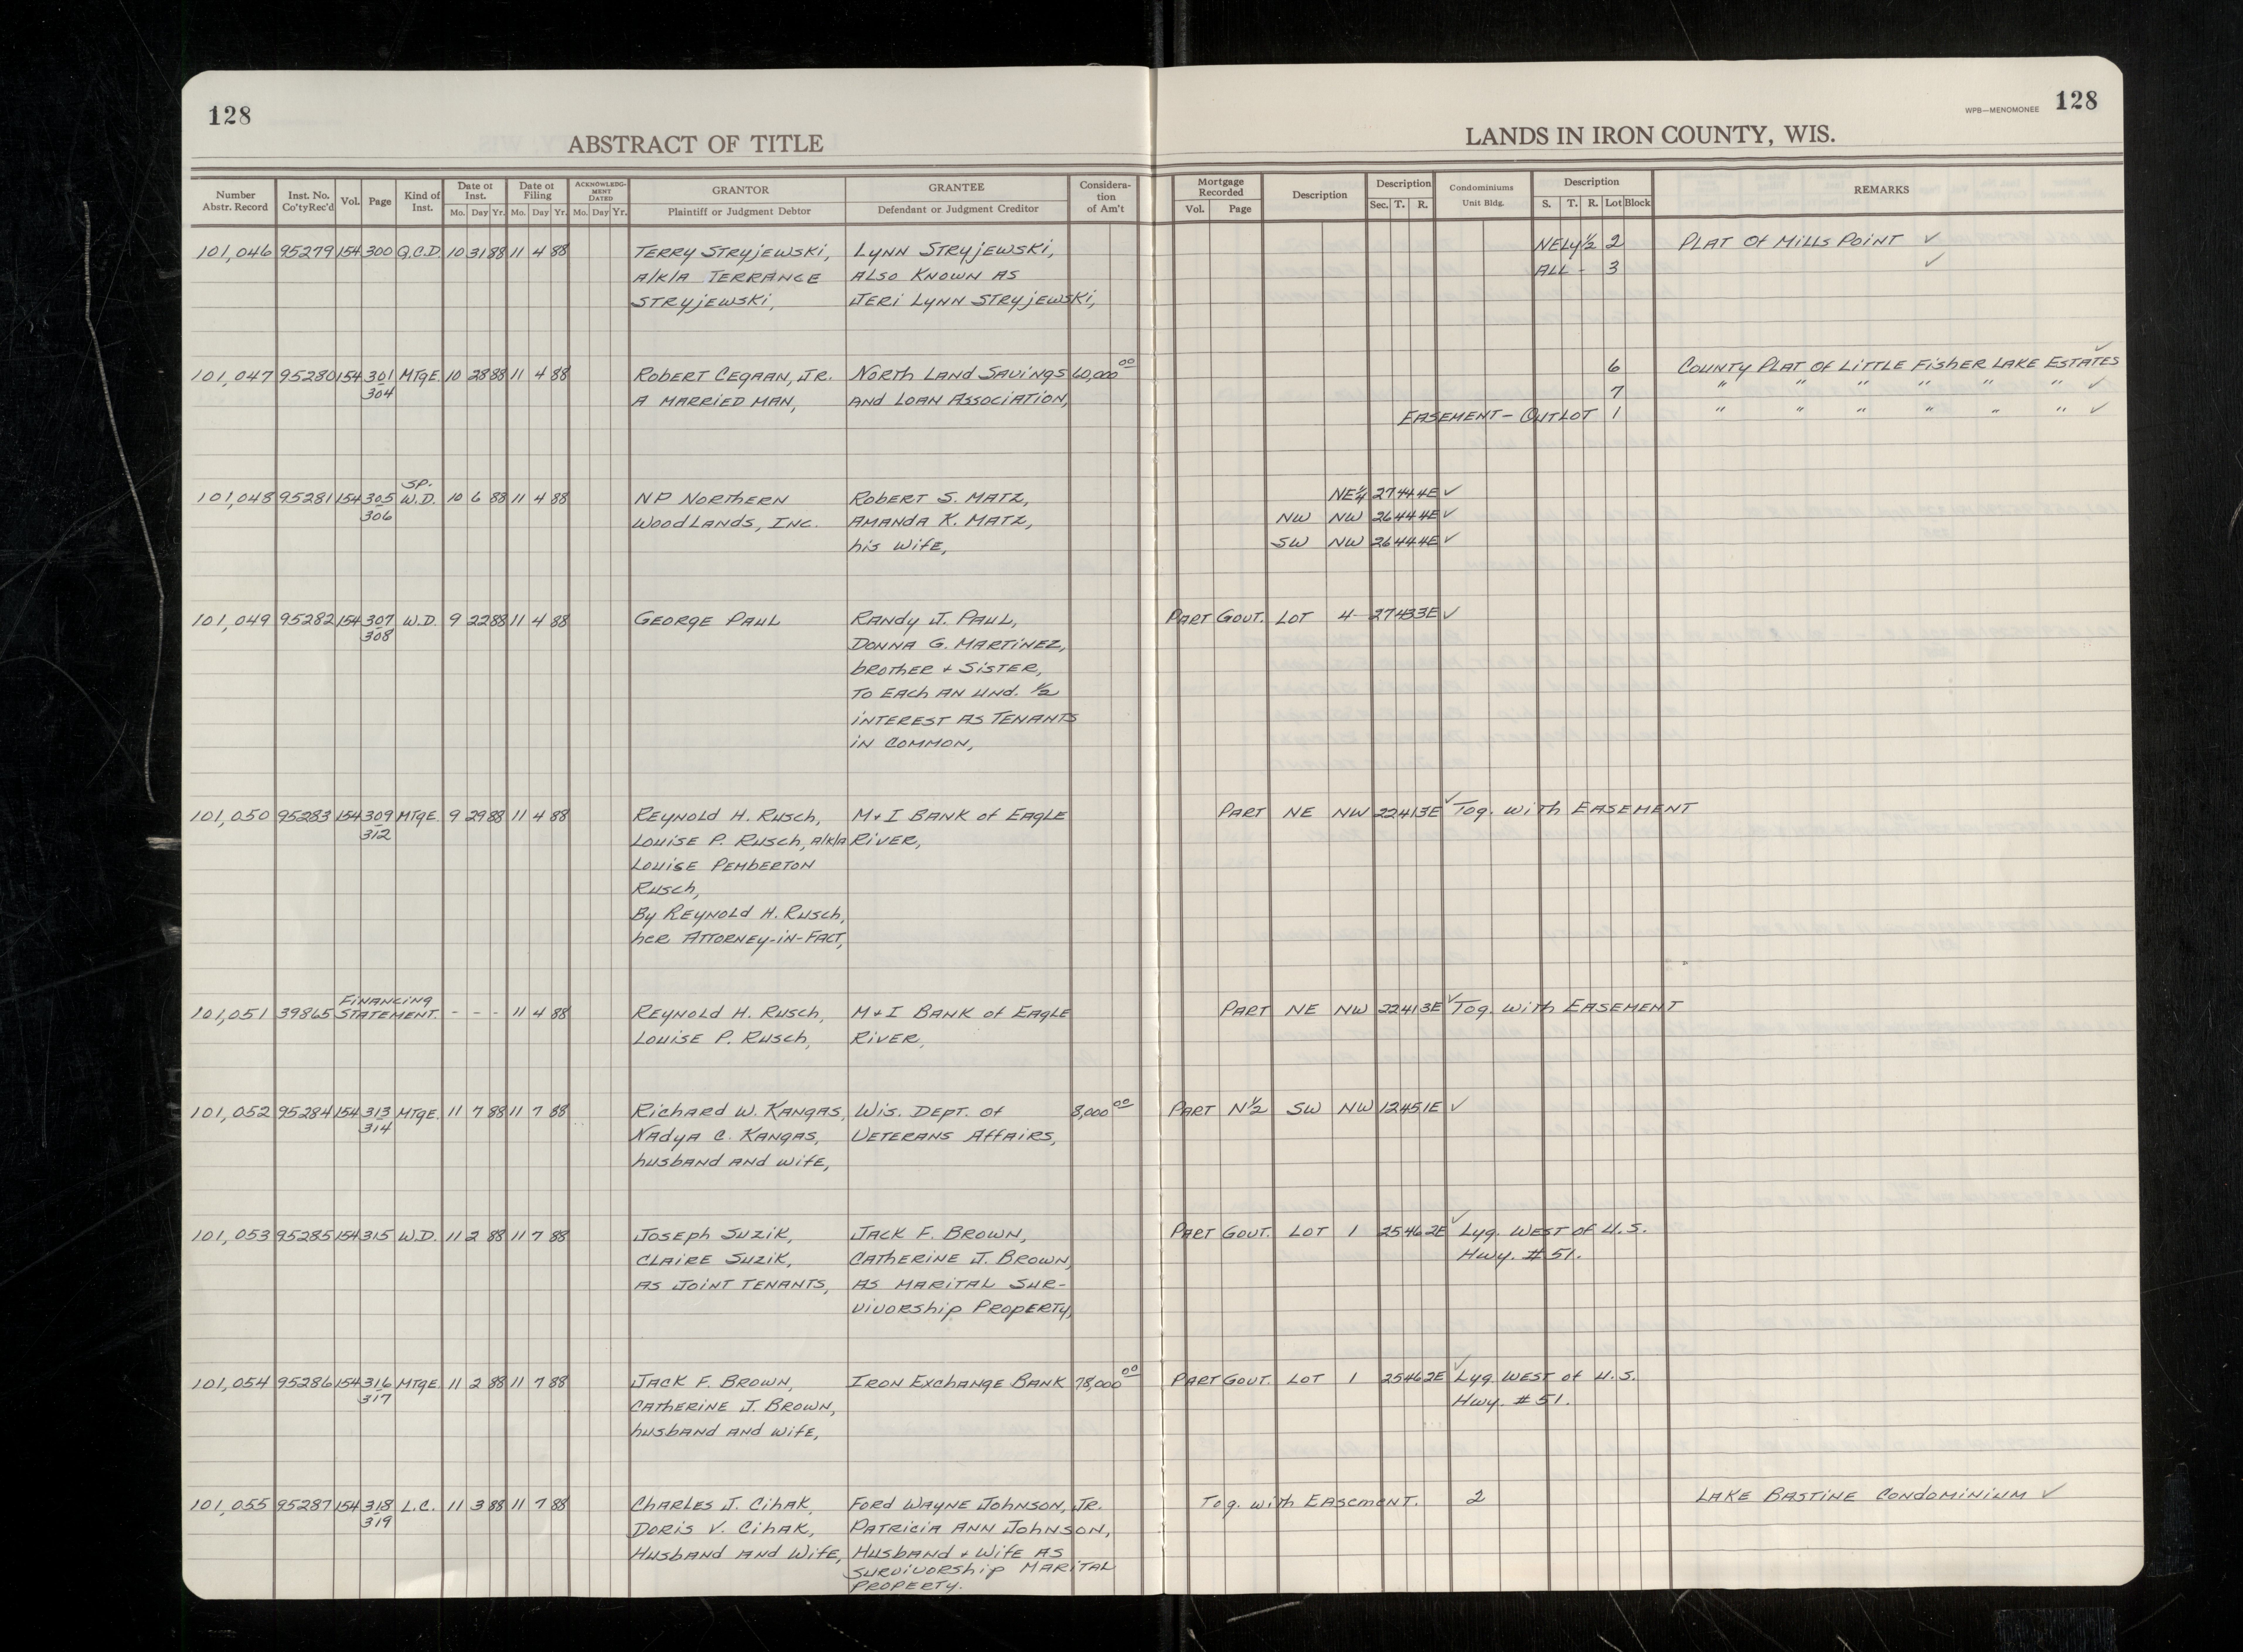 128
ABSTRACT OF TITLE
LANDS IN IRON COUNTY, WIS.
WPB—MENOMONEE 128
Number Abstr. Record Inst. No. Co'ty Rec'd Vol. Page Kind of Inst. Date of Inst. Mo. Day Yr. Date of Filing Mo. Day Yr. ACKNOWLEDGMENT DATED Mo. Day Yr. GRANTOR Plaintiff or Judgment Debtor GRANTEE Defendant or Judgment Creditor Consideration of Am't Mortgage Recorded Vol. Page Description Description Sec. T. R. Condominiums Unit Bldg. Description S. T. R. Lot Block REMARKS
101,046 95279 154 300 Q.C.D. 10 31 88 11 4 88 Terry Stryjewski, Lynn Stryjewski, NELy ½ 2 Plat of Mills Point ✓
a/k/a Terrance Also Known As ALL - 3 ✓
Stryjewski, Jeri Lynn Stryjewski,
101,047 95280 154 301 MTGE. 10 28 88 11 4 88 Robert Cegaan, Jr. North Land Savings 60,000 00 6 County Plat of Little Fisher Lake Estates ✓
304 A Married Man, And Loan Association, 7 " " " " " " ✓
Easement - Outlot 1 " " " " " " ✓
101,048 95281 154 305 SP. W.D. 10 6 88 11 4 88 NP Northern Robert S. Matz, NE¼ 27 44 4E ✓
306 Woodlands, Inc. Amanda K. Matz, NW NW 26 44 4E ✓
his wife, SW NW 26 44 4E ✓
101,049 95282 154 307 W.D. 9 22 88 11 4 88 George Paul Randy J. Paul, Part Govt. Lot 4 27 43 3E ✓
308 Donna G. Martinez,
brother + Sister,
To Each An und. ½
interest as Tenants
in Common,
101,050 95283 154 309 MTGE. 9 29 88 11 4 88 Reynold H. Rusch, M+I Bank of Eagle Part NE NW 22 41 3E ✓ Tog. with Easement
312 Louise P. Rusch, a/k/a River,
Louise Pemberton
Rusch,
By Reynold H. Rusch,
her Attorney-in-Fact,
101,051 39865 Financing Statement. - - - 11 4 88 Reynold H. Rusch, M+I Bank of Eagle Part NE NW 22 41 3E ✓ Tog. with Easement
Louise P. Rusch, River,
101,052 95284 154 313 MTGE. 11 7 88 11 7 88 Richard W. Kangas, Wis. Dept. of 8,000 00 Part N½ SW NW 12 45 1E ✓
314 Nadya C. Kangas, Veterans Affairs,
husband and wife,
101,053 95285 154 315 W.D. 11 2 88 11 7 88 Joseph Suzik, Jack F. Brown, Part Govt. Lot 1 25 46 2E ✓ Lyg. West of U.S.
Claire Suzik, Catherine J. Brown, Hwy. #51.
as Joint Tenants, as Marital Sur-
vivorship Property,
101,054 95286 154 316 MTGE. 11 2 88 11 7 88 Jack F. Brown, Iron Exchange Bank 78,000 00 Part Govt. Lot 1 25 46 2E ✓ Lyg. West of U.S.
317 Catherine J. Brown, Hwy. #51.
husband and wife,
101,055 95287 154 318 L.C. 11 3 88 11 7 88 Charles J. Cihak, Ford Wayne Johnson, Jr. Tog. with Easement. 2 Lake Bastine Condominium ✓
319 Doris V. Cihak, Patricia Ann Johnson,
Husband and Wife, Husband + Wife as
Survivorship Marital
Property.